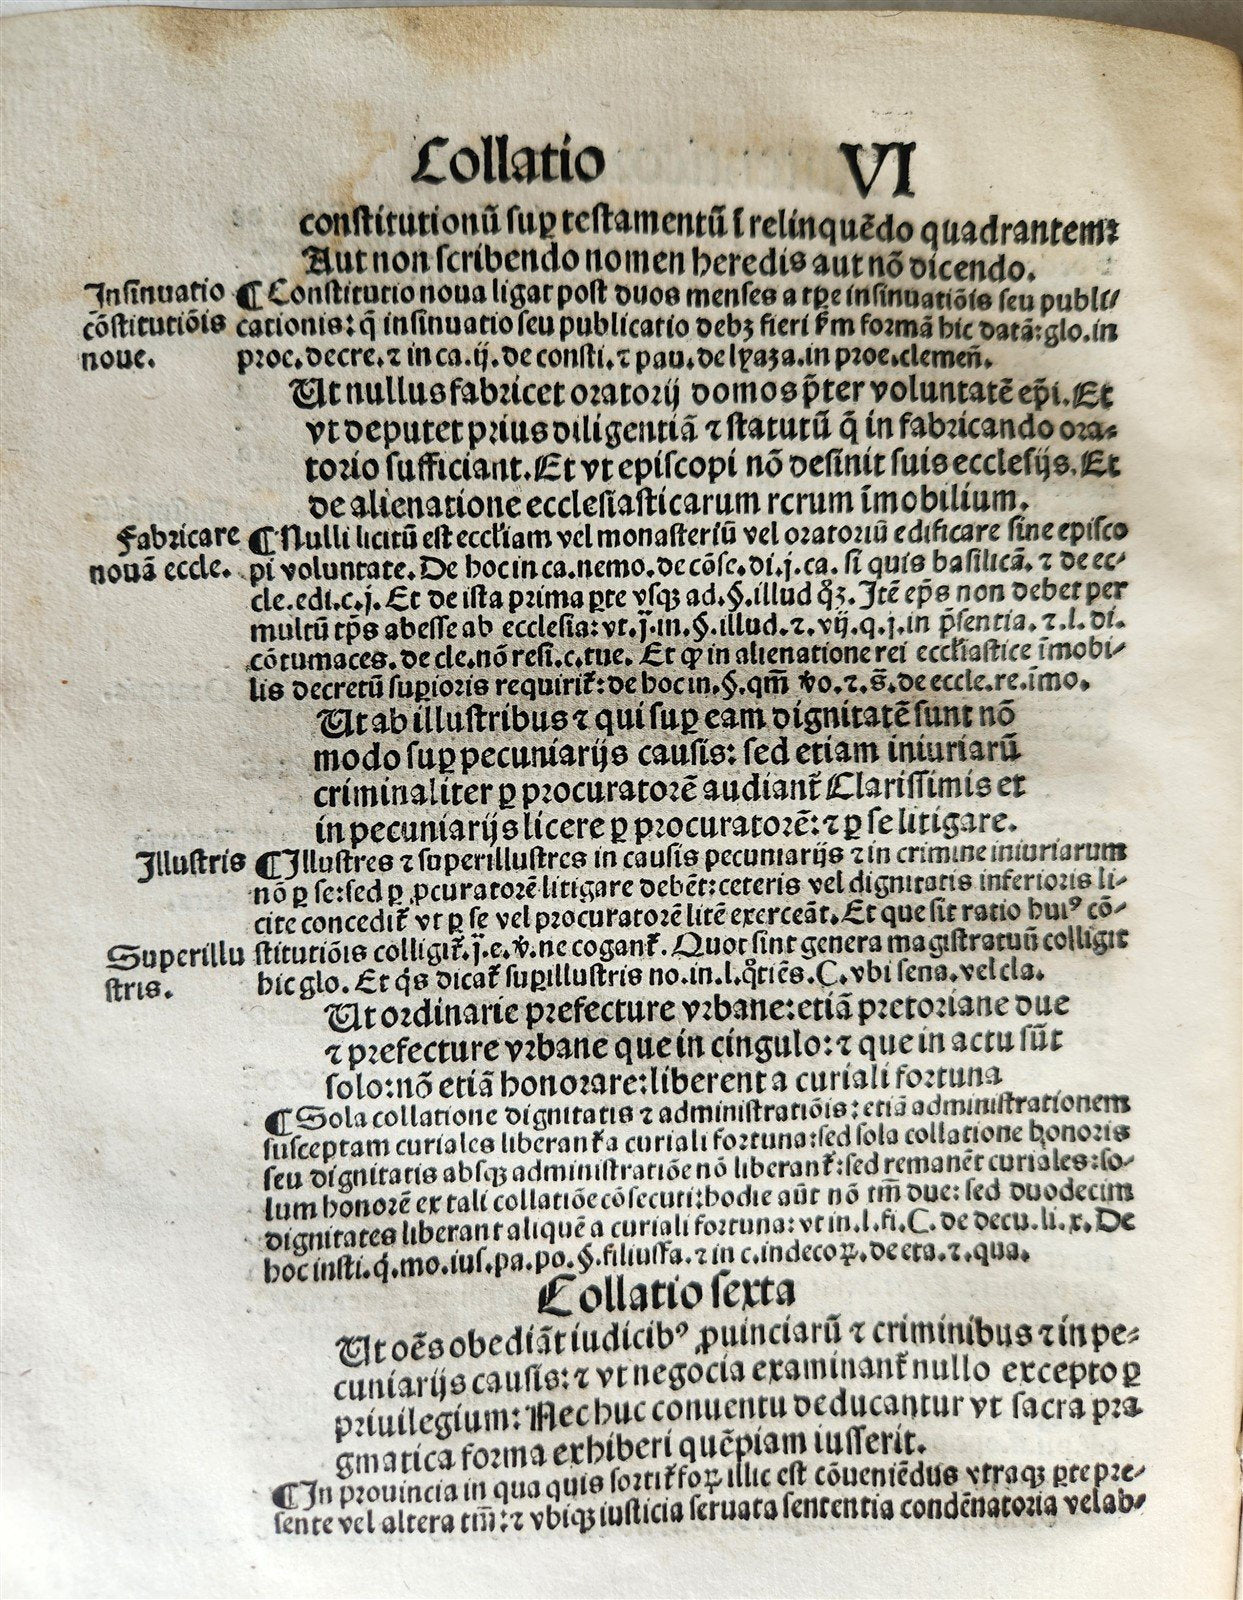 Collatio VI
constitutionū suꝑ testamentū ī relinquēdo quadrantem:
Aut non scribendo nomen heredis aut nō dicendo.
Insinuatio
cōstitutiōis
noue.
¶ Constitutio noua ligat post duos menses a tꝑe insinuatiōis seu publi-
cationis: q̄ insinuatio seu publicatio debꝫ fieri ẜm formā hic datā: glo. in
proe. decre. ⁊ in ca. ij. de consti. ⁊ pau. de lyaza. in proe. clemen̄.
Ut nullus fabricet oratorij domos p̄ter voluntatē ep̄i. Et
vt deputet prius diligentiā ⁊ statutū q̄ in fabricando ora-
torio sufficiant. Et vt episcopi nō desinit suis ecclesijs. Et
de alienatione ecclesiasticarum rerum īmobilium.
Fabricare
nouā eccle.
¶ Nulli licitū est eccłiam vel monasteriū vel oratoriū edificare sine episco
pi voluntate. De hoc in ca. nemo. de cōsc. di. j. ca. si quis basilicā. ⁊ de ec-
cle. edi. c. j. Et de ista prima ꝑte vsqꝫ ad. §. illud q̊ꝫ. Itē ep̄s non debet per
multū tp̄s abesse ab ecclesia: vt. j̄. in. §. illud. ⁊. vij. q. j. in p̄sentia. ⁊. l. di.
cōtumaces. de cle. nō resi. c. tue. Et ꝙ in alienatione rei eccłiastice īmobi-
lis decretū suꝑioris requirit̃: de hoc in. §. qm̄ v̓o. ⁊. s̄. de eccle. re. īmo.
Ut ab illustribus ⁊ qui suꝑ eam dignitatē sunt nō
modo suꝑ pecuniarijs causis: sed etiam iniuriarū
criminaliter ꝑ procuratorē audiant̃ Clarissimis et
in pecuniarijs licere ꝑ procuratorē: ⁊ ꝑ se litigare.
Illustris
¶ Illustres ⁊ superillustres in causis pecuniarijs ⁊ in crimine iniuriarum
nō ꝑ se: sed ꝑ ꝓcuratorē litigare debēt: ceteris vel dignitatis inferioris li-
cite concedit̃ vt ꝑ se vel procuratorē litē exerceāt. Et que sit ratio huiꝰ cō-
Superillu
stris.
stitutiōis colligit̃. j̄. e. v̓. ne cogant̃. Quot sint genera magistratuū colligit
hic glo. Et q̇s dicat̃ suꝑillustris no. in. l. q̊tiēs. C. vbi sena. vel cla.
Ut ordinarie prefecture vrbane: etiā pretoriane due
⁊ prefecture vrbane que in cingulo: ⁊ que in actu sūt
solo: nō etiā honorare: liberent a curiali fortuna
¶ Sola collatione dignitatis ⁊ administratiōis: etiā administrationem
susceptam curiales liberant̃ a curiali fortuna: sed sola collatione honoris
seu dignitatis absqꝫ administratiōe nō liberant̃: sed remanēt curiales: so-
lum honorē ex tali collatiōe cōsecuti: hodie aūt nō tm̄ due: sed duodecim
dignitates liberant aliquē a curiali fortuna: vt in. l. fi. C. de decu. li. x. De
hoc insti. q̇. mo. ius. pa. po. §. filiusfa. ⁊ in c. indecoꝝ. de eta. ⁊. qua.
Collatio sexta
Ut oēs obediāt iudicibꝰ ꝓuinciarū ⁊ criminibus ⁊ in pe-
cuniarijs causis: ⁊ vt negocia examinant̃ nullo excepto ꝑ
priuilegium: Nec huc conuentu deducantur vt sacra pra
gmatica forma exhiberi quēpiam iusserit.
¶ In prouincia in qua quis sortit̃ foꝝ illic est cōueniēdus vtraqꝫ ꝑte pre-
sente vel altera tm̄: ⁊ vbiqꝫ iusticia seruata sententia condēnatoria vel ab-